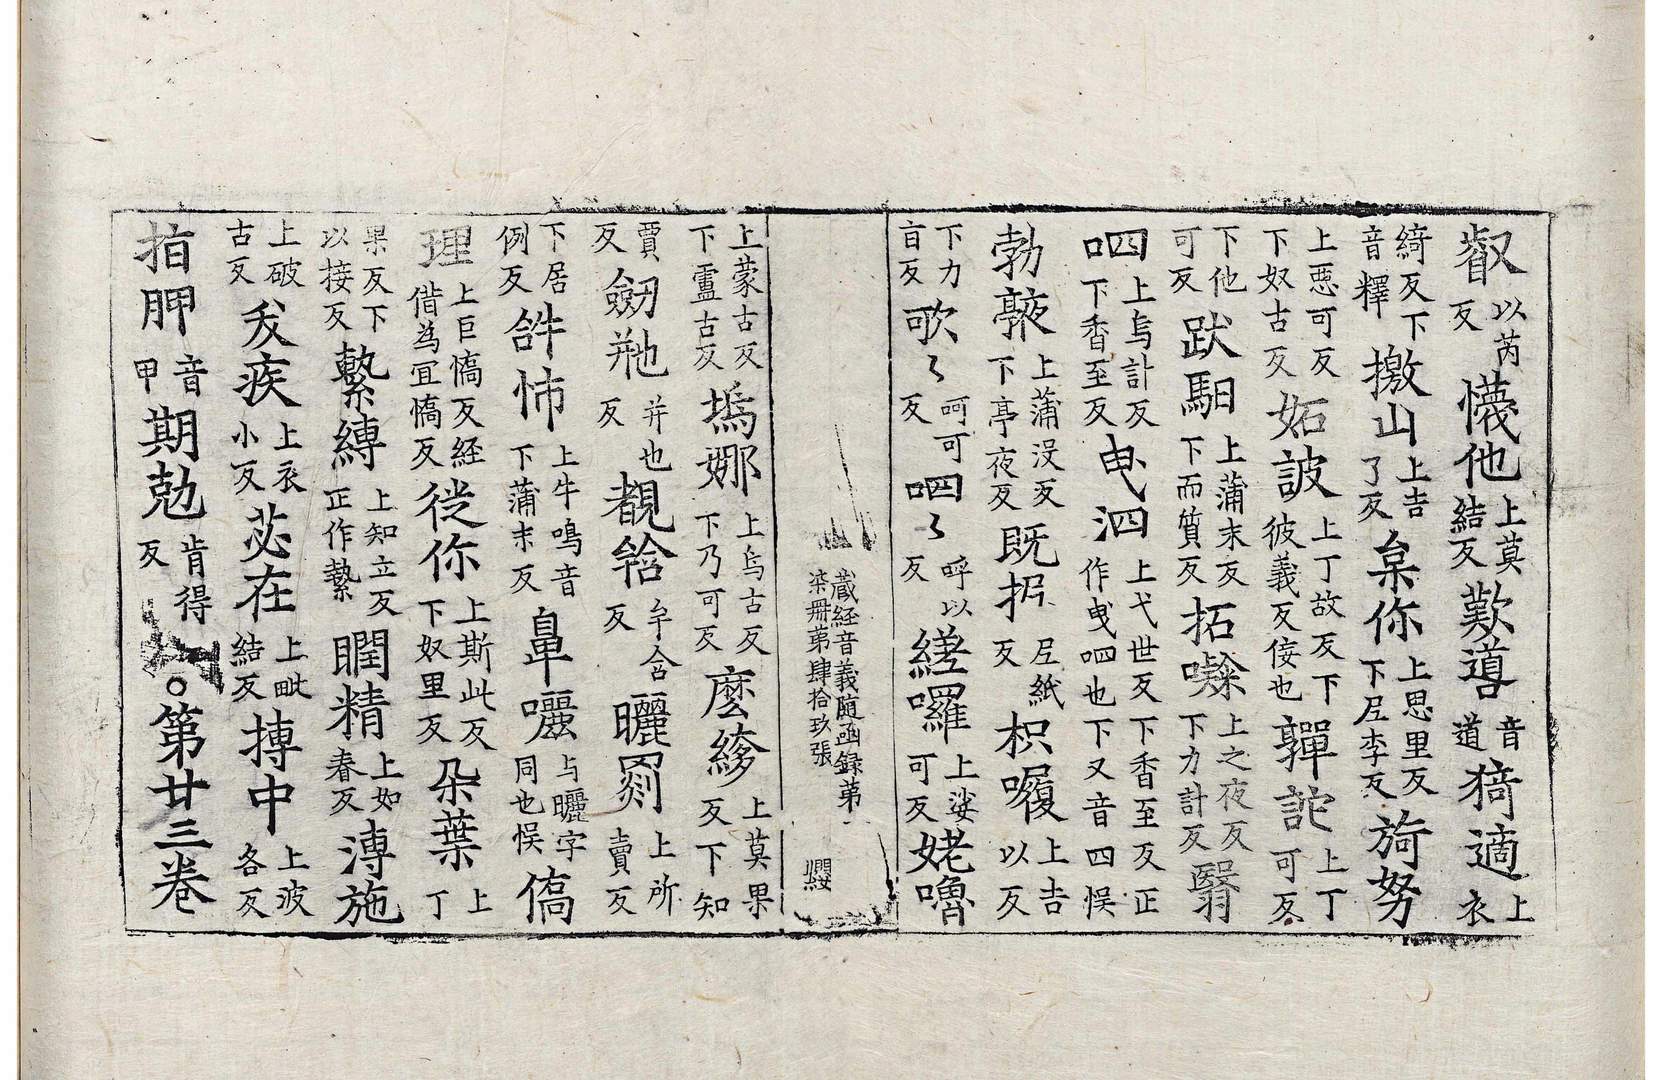 叡以芮反懱他上莫結反歎噵音道猗適上衣
綺反下音釋撽山上吉了反枲你上思里反下𡰱李反旑努
上惡可反下奴古反妬詖上丁故反下彼義反倿也軃詑上丁可反
下他可反跋馹上蒲末反下而質反拓㗚上之夜反下力計反翳
呬上烏計反下香至反曳泗上弋世反下香至反正作曳呬也下又音四悮
勃㩉上蒲没反下亭夜反既抧𡰱紙反枳㘑上吉以反
下力盲反歌〻呵可反呬〻呼以反縒囉上娑可反姥嚕
藏經音義隨函録第一
柒冊第肆拾玖張 纓
上蒙古反下盧古反塢娜上烏古反下乃可反麼縿上莫果反下知
賈反劒𦍕并也反覩𦧇牟含反曬罽上所賣反下居
例反𧦧怖上牛鳴音下蒲末反鼻囇与曬字同也悮僑
理上巨憍反経偕為冝憍反徙你上斯此反下奴里反朶葉上丁
果反下以接反縶縛上知立反正作縶瞤精上如春反溥施
上破古反犮疾上衣小反苾在上毗結反搏中上波各反
拍胛音甲期尅肯得反〇第廿三卷